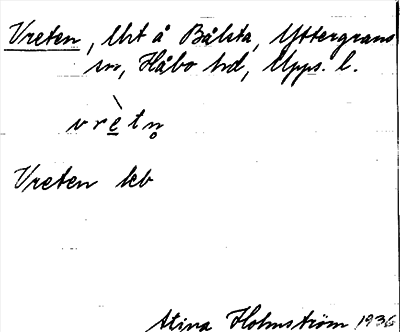 Vreten, Uht å Bålsta, Yttergrans
sn, Håbo hd, Upps. l.
vrètn̥
Vreten kb
Stina Holmström 1936